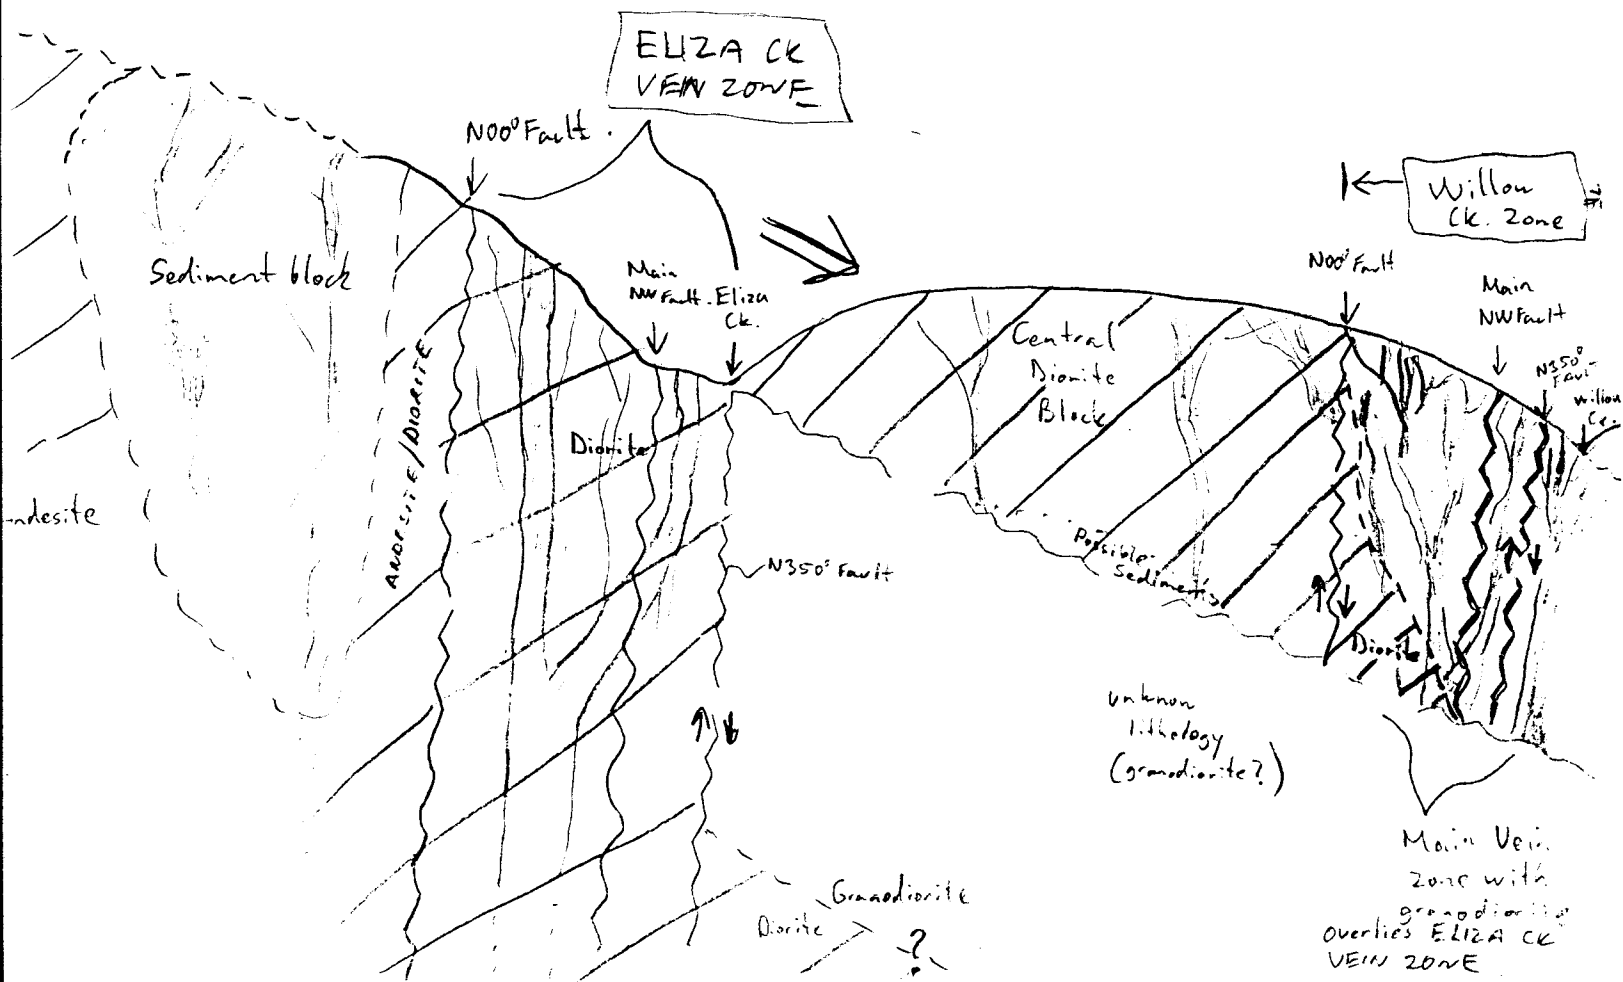 ELIZA CK
VEIN ZONE
N00° Fault.
Willow
Ck. Zone
N00° Fault
Main
NW Fault
N350°
Fault
Willow
Ck.
Sediment block
Main
NW Fault.
Eliza
Ck.
Central
Diorite
Block
ANDESITE/DIORITE
Diorite
ndesite
N350° Fault
Possible
Sediments
Diorite
unknon
lithology
(granodiorite?)
Main Vein
zone with
granodiorite
overlies ELIZA CK
VEIN ZONE
Granodiorite
Diorite
?